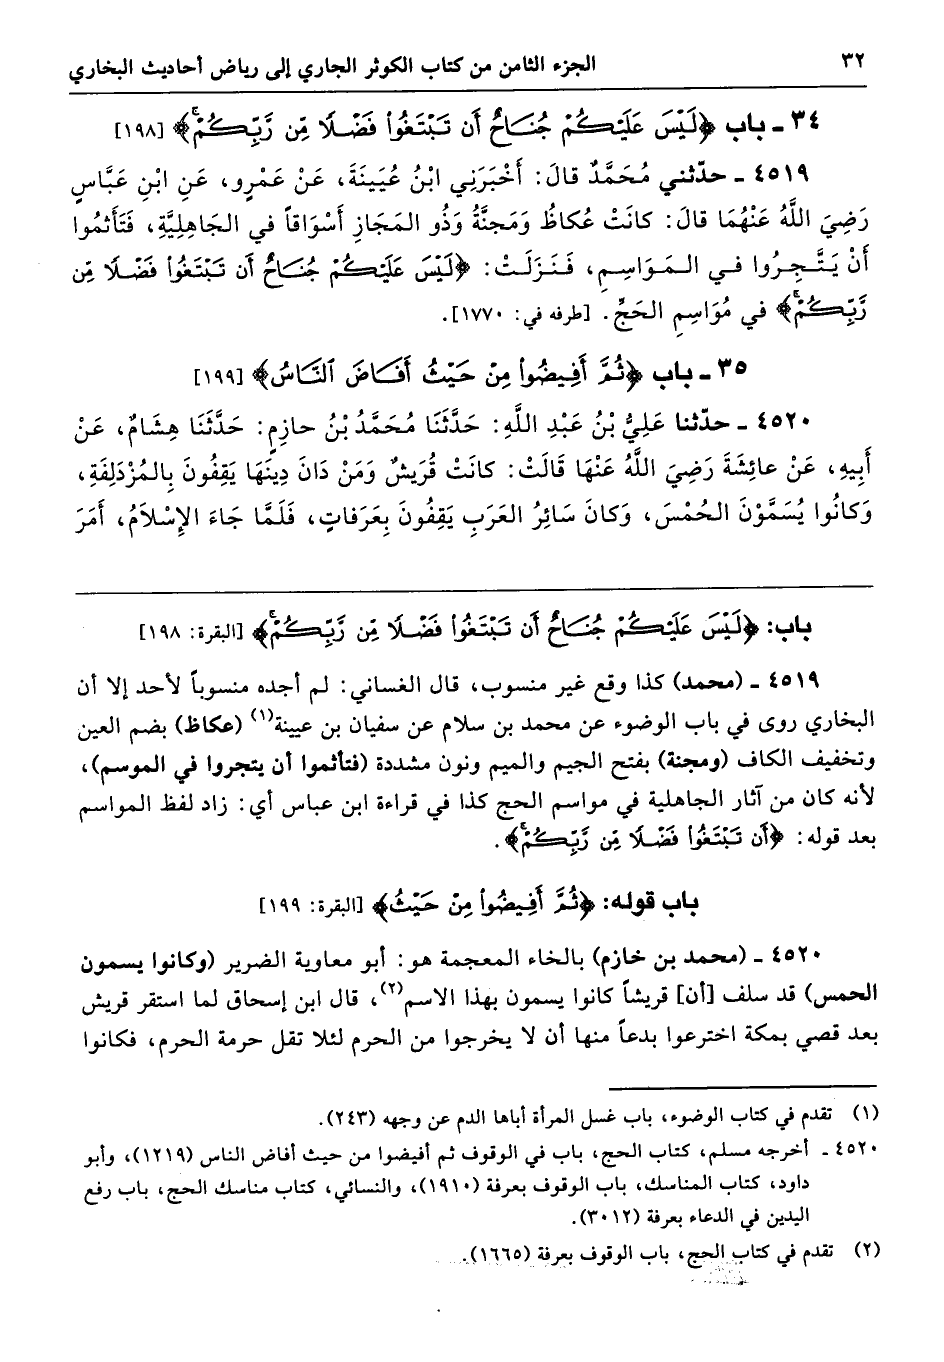 ٣٢ الجزء الثامن من كتاب الكوثر الجاري إلى رياض أحاديث البخاري
٣٤ ـ باب ﴿لَيْسَ عَلَيْكُمْ جُنَاحٌ أَن تَبْتَغُوا۟ فَضْلًا مِّن رَّبِّكُمْ ۚ﴾ [١٩٨]
٤٥١٩ ـ حدّثني مُحَمَّدٌ قالَ: أَخْبَرَنِي ابْنُ عُيَينَةَ، عَنْ عَمْرٍو، عَنِ ابْنِ عَبَّاسٍ
رَضِيَ اللَّهُ عَنْهُمَا قالَ: كانَتْ عُكاظُ وَمَجنَّةُ وَذُو المَجَازِ أَسْوَاقاً في الجَاهِلِيَّةِ، فَتَأَثمُوا
أَنْ يَتَّجِرُوا في المَوَاسِمِ، فَنَزَلَتْ: ﴿لَيْسَ عَلَيْكُمْ جُنَاحٌ أَن تَبْتَغُوا۟ فَضْلًا مِّن
رَّبِّكُمْ ۚ﴾ في مُوَاسِمِ الحَجِّ. [طرفه في: ١٧٧٠].
٣٥ ـ باب ﴿ثُمَّ أَفِيضُوا۟ مِنْ حَيْثُ أَفَاضَ ٱلنَّاسُ﴾ [١٩٩]
٤٥٢٠ ـ حدّثنا عَلِيُّ بْنُ عَبْدِ اللَّهِ: حَدَّثَنَا مُحَمَّدُ بْنُ حازِمٍ: حَدَّثَنَا هِشَامٌ، عَنْ
أَبِيهِ، عَنْ عائِشَةَ رَضِيَ اللَّهُ عَنْهَا قَالَتْ: كانَتْ قُرَيشٌ وَمَنْ دَانَ دِينَهَا يَقِفُونَ بِالمُزْدَلِفَةِ،
وَكانُوا يُسَمَّوْنَ الحُمْسَ، وَكانَ سَائِرُ العَرَبِ يَقِفُونَ بِعَرَفاتٍ، فَلَمَّا جَاءَ الإِسْلَامُ، أَمَرَ
باب: ﴿لَيْسَ عَلَيْكُمْ جُنَاحٌ أَن تَبْتَغُوا۟ فَضْلًا مِّن رَّبِّكُمْ ۚ﴾ [البقرة: ١٩٨]
٤٥١٩ ـ (محمد) كذا وقع غير منسوب، قال الغساني: لم أجده منسوباً لأحد إلا أن
البخاري روى في باب الوضوء عن محمد بن سلام عن سفيان بن عيينة(١) (عكاظ) بضم العين
وتخفيف الكاف (ومجنة) بفتح الجيم والميم ونون مشددة (فتأثموا أن يتجروا في الموسم)،
لأنه كان من آثار الجاهلية في مواسم الحج كذا في قراءة ابن عباس أي: زاد لفظ المواسم
بعد قوله: ﴿أَن تَبْتَغُوا۟ فَضْلًا مِّن رَّبِّكُمْ ۚ﴾.
باب قوله: ﴿ثُمَّ أَفِيضُوا۟ مِنْ حَيْثُ﴾ [البقرة: ١٩٩]
٤٥٢٠ ـ (محمد بن خازم) بالخاء المعجمة هو: أبو معاوية الضرير (وكانوا يسمون
الحمس) قد سلف [أن] قريشاً كانوا يسمون بهذا الاسم(٢)، قال ابن إسحاق لما استقر قريش
بعد قصي بمكة اخترعوا بدعاً منها أن لا يخرجوا من الحرم لئلا تقل حرمة الحرم، فكانوا
(١) تقدم في كتاب الوضوء، باب غسل المرأة أباها الدم عن وجهه (٢٤٣).
٤٥٢٠ ـ أخرجه مسلم، كتاب الحج، باب في الوقوف ثم أفيضوا من حيث أفاض الناس (١٢١٩)، وأبو
داود، كتاب المناسك، باب الوقوف بعرفة (١٩١٠)، والنسائي، كتاب مناسك الحج، باب رفع
اليدين في الدعاء بعرفة (٣٠١٢).
(٢) تقدم في كتاب الحج، باب الوقوف بعرفة (١٦٦٥).